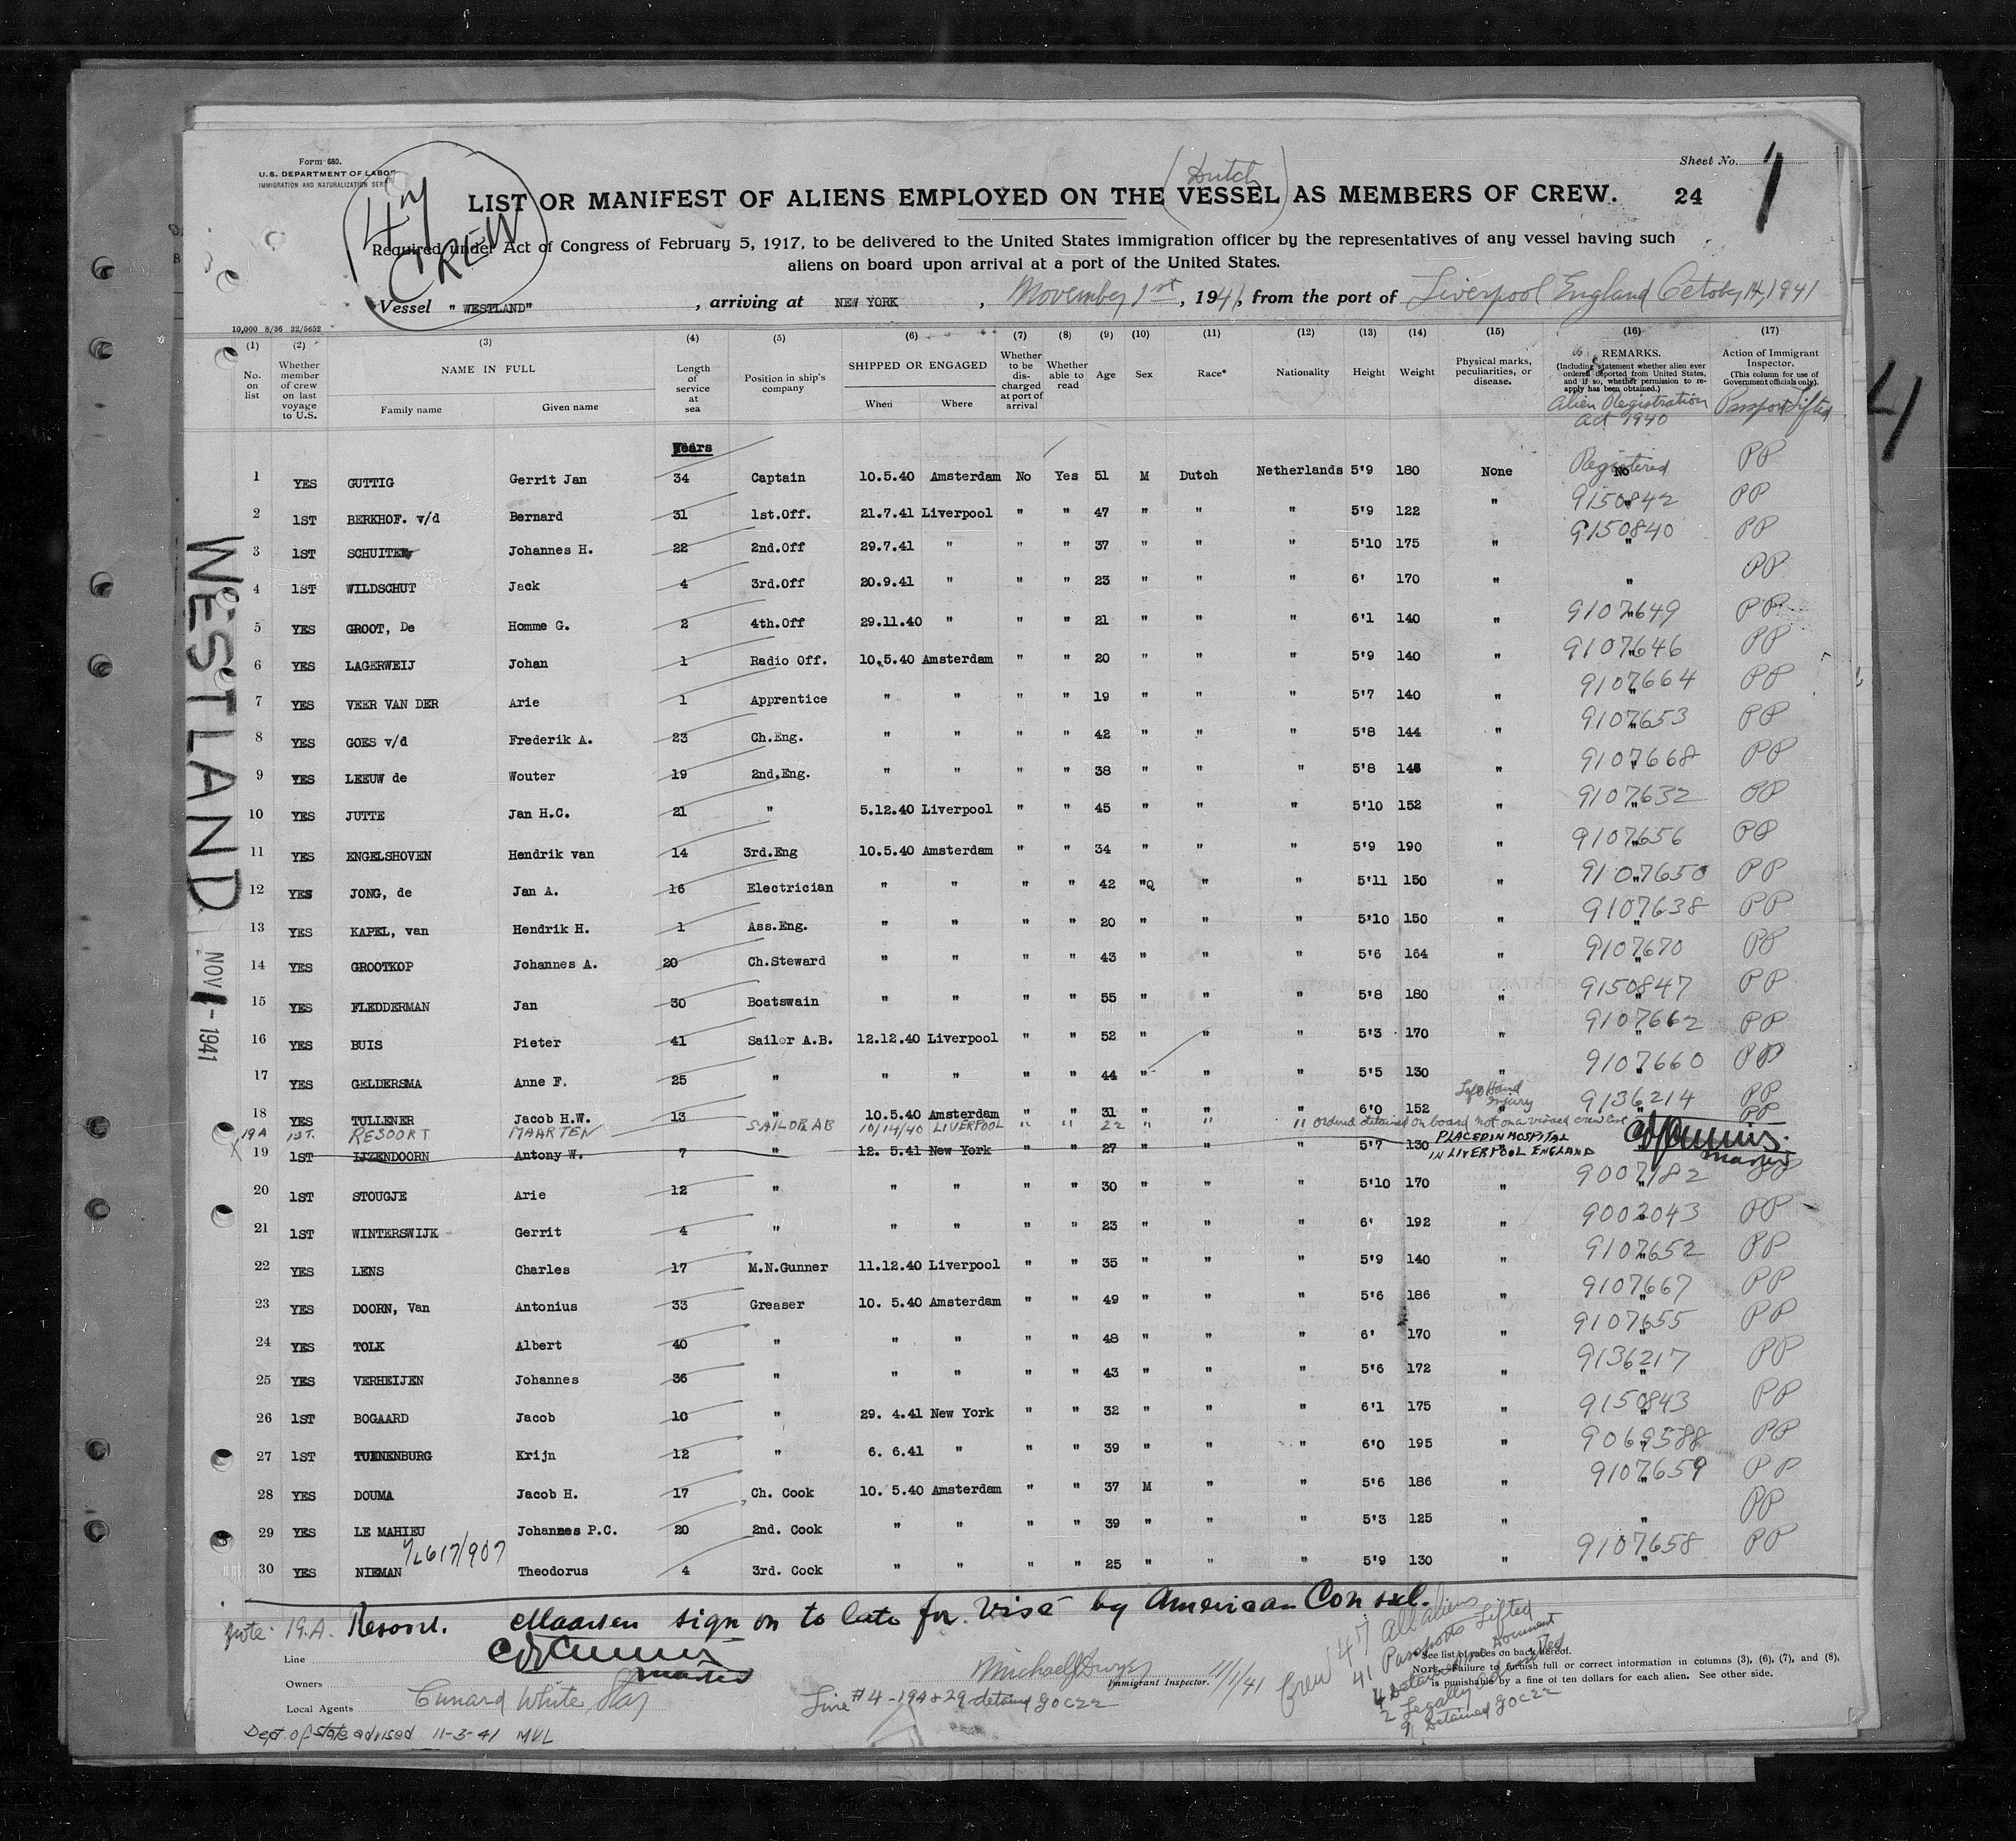 Form 680.
U.S. DEPARTMENT OF LABOR
IMMIGRATION AND NATURALIZATION SERVICE
47
CREW
Sheet No. 1
1
(Dutch)
LIST OR MANIFEST OF ALIENS EMPLOYED ON THE VESSEL AS MEMBERS OF CREW. 24
Required under Act of Congress of February 5, 1917, to be delivered to the United States immigration officer by the representatives of any vessel having such
aliens on board upon arrival at a port of the United States.
Vessel "WESTLAND", arriving at NEW YORK, November 1st, 1941, from the port of Liverpool England October 14, 1941
10,000 8/36 32/5652
(1) (2) (3) (4) (5) (6) (7) (8) (9) (10) (11) (12) (13) (14) (15) (16) (17)
No. on list
Whether member of crew on last voyage to U.S.
NAME IN FULL
Family name
Given name
Length of service at sea
Position in ship's company
SHIPPED OR ENGAGED
When
Where
Whether to be discharged at port of arrival
Whether able to read
Age
Sex
Race*
Nationality
Height
Weight
Physical marks, peculiarities, or disease.
REMARKS.
(Including statement whether alien ever ordered deported from United States, and if so, whether permission to reapply has been obtained.)
Alien Registration
Act 1940
Action of Immigrant Inspector.
(This column for use of Government officials only).
Passport Lifted
4
Years
1 YES GUTTIG Gerrit Jan 34 Captain 10.5.40 Amsterdam No Yes 51 M Dutch Netherlands 5'9 180 None Registered No PP
2 1ST BERKHOF. v/d Bernard 31 1st.Off. 21.7.41 Liverpool " " 47 " " " 5'9 122 " 9150842 " PP
3 1ST SCHUITEN Johannes H. 22 2nd.Off 29.7.41 " " " 37 " " " 5'10 175 " 9150840 " PP
4 1ST WILDSCHUT Jack 4 3rd.Off 20.9.41 " " " 23 " " " 6' 170 " " PP
5 YES GROOT, De Homme G. 2 4th.Off 29.11.40 " " " 21 " " " 6'1 140 " 9107649 " PP
6 YES LAGERWEIJ Johan 1 Radio Off. 10.5.40 Amsterdam " " 20 " " " 5'9 140 " 9107646 " PP
7 YES VEER VAN DER Arie 1 Apprentice " " " " 19 " " " 5'7 140 " 9107664 " PP
8 YES GOES v/d Frederik A. 23 Ch.Eng. " " " " 42 " " " 5'8 144 " 9107653 " PP
9 YES LEEUW de Wouter 19 2nd.Eng. " " " " 38 " " " 5'8 145 " 9107668 " PP
10 YES JUTTE Jan H.C. 21 " 5.12.40 Liverpool " " 45 " " " 5'10 152 " 9107632 " PP
11 YES ENGELSHOVEN Hendrik van 14 3rd.Eng 10.5.40 Amsterdam " " 34 " " " 5'9 190 " 9107656 " PP
12 YES JONG, de Jan A. 16 Electrician " " " " 42 "Q " " 5'11 150 " 9107650 " PP
13 YES KAPEL, van Hendrik H. 1 Ass.Eng. " " " " 20 " " " 5'10 150 " 9107638 " PP
14 YES GROOTKOP Johannes A. 20 Ch.Steward " " " " 43 " " " 5'6 164 " 9107670 " PP
15 YES FLEDDERMAN Jan 30 Boatswain " " " " 55 " " " 5'8 180 " 9150847 " PP
16 YES BUIS Pieter 41 Sailor A.B. 12.12.40 Liverpool " " 52 " " " 5'3 170 " 9107662 " PP
17 YES GELDERSMA Anne F. 25 " " " " " 44 " " 5'5 130 " 9107660 " PP
18 YES TULLENER Jacob H.W. 13 " 10.5.40 Amsterdam " " 31 " " " 6'0 152 Left Hand Injury " 9136214 " PP
19A 1ST. RESOORT MAARTEN SAILOR AB 10/14/40 LIVERPOOL " " 22 " " " ordered detained on board not on a visaed crew list PP
19 1ST IJZENDOORN Antony W. 7 " 12. 5.41 New York " " 27 " " " 5'7 130 PLACED IN HOSPITAL
IN LIVERPOOL ENGLAND
Master
20 1ST STOUGJE Arie 12 " " " " " 30 " " " 5'10 170 " 9007182 " PP
21 1ST WINTERSWIJK Gerrit 4 " " " " " 23 " " " 6' 192 " 9002043 " PP
22 YES LENS Charles 17 M.N.Gunner 11.12.40 Liverpool " " 35 " " " 5'9 140 " 9107652 " PP
23 YES DOORN, Van Antonius 33 Greaser 10. 5.40 Amsterdam " " 49 " " " 5'6 186 " 9107667 " PP
24 YES TOLK Albert 40 " " " " " 48 " " " 6' 170 " 9107655 " PP
25 YES VERHEIJEN Johannes 36 " " " " " 43 " " " 5'6 172 " 9136217 " PP
26 1ST BOGAARD Jacob 10 " 29. 4.41 New York " " 32 " " " 6'1 175 " 9150843 " PP
27 1ST TUNNENBURG Krijn 12 " 6. 6.41 " " " 39 " " " 6'0 195 " 9069588 " PP
28 YES DOUMA Jacob H. 17 Ch. Cook 10. 5.40 Amsterdam " " 37 M " " 5'6 186 " 9107659 " PP
29 YES LE MAHIEU Johannes P.C. 20 2nd. Cook " " " " 39 " " " 5'3 125 " " PP
30 YES NIEMAN Theodorus 4 3rd. Cook " " " " 25 " " " 5'9 130 " 9107658 " PP
WESTLAND
NOV 1 - 1941
Note: 19.A. Resoort. Maarten sign on to late for Visé by American Consul.
Master
Line
Owners
Local Agents Cunard White Star
Michael J Dwyer 11/1/41
Immigrant Inspector.
Line #4-19A & 29 detained GOC22
Crew 47 All aliens
41 Passports Lifted
4 Detained no Document
2 Legally admitted
9 Detained GOC22
* See list of races on back hereof.
NOTE.—Failure to furnish full or correct information in columns (3), (6), (7), and (8),
is punishable by a fine of ten dollars for each alien. See other side.
Dept. of state advised 11-3-41 MVL